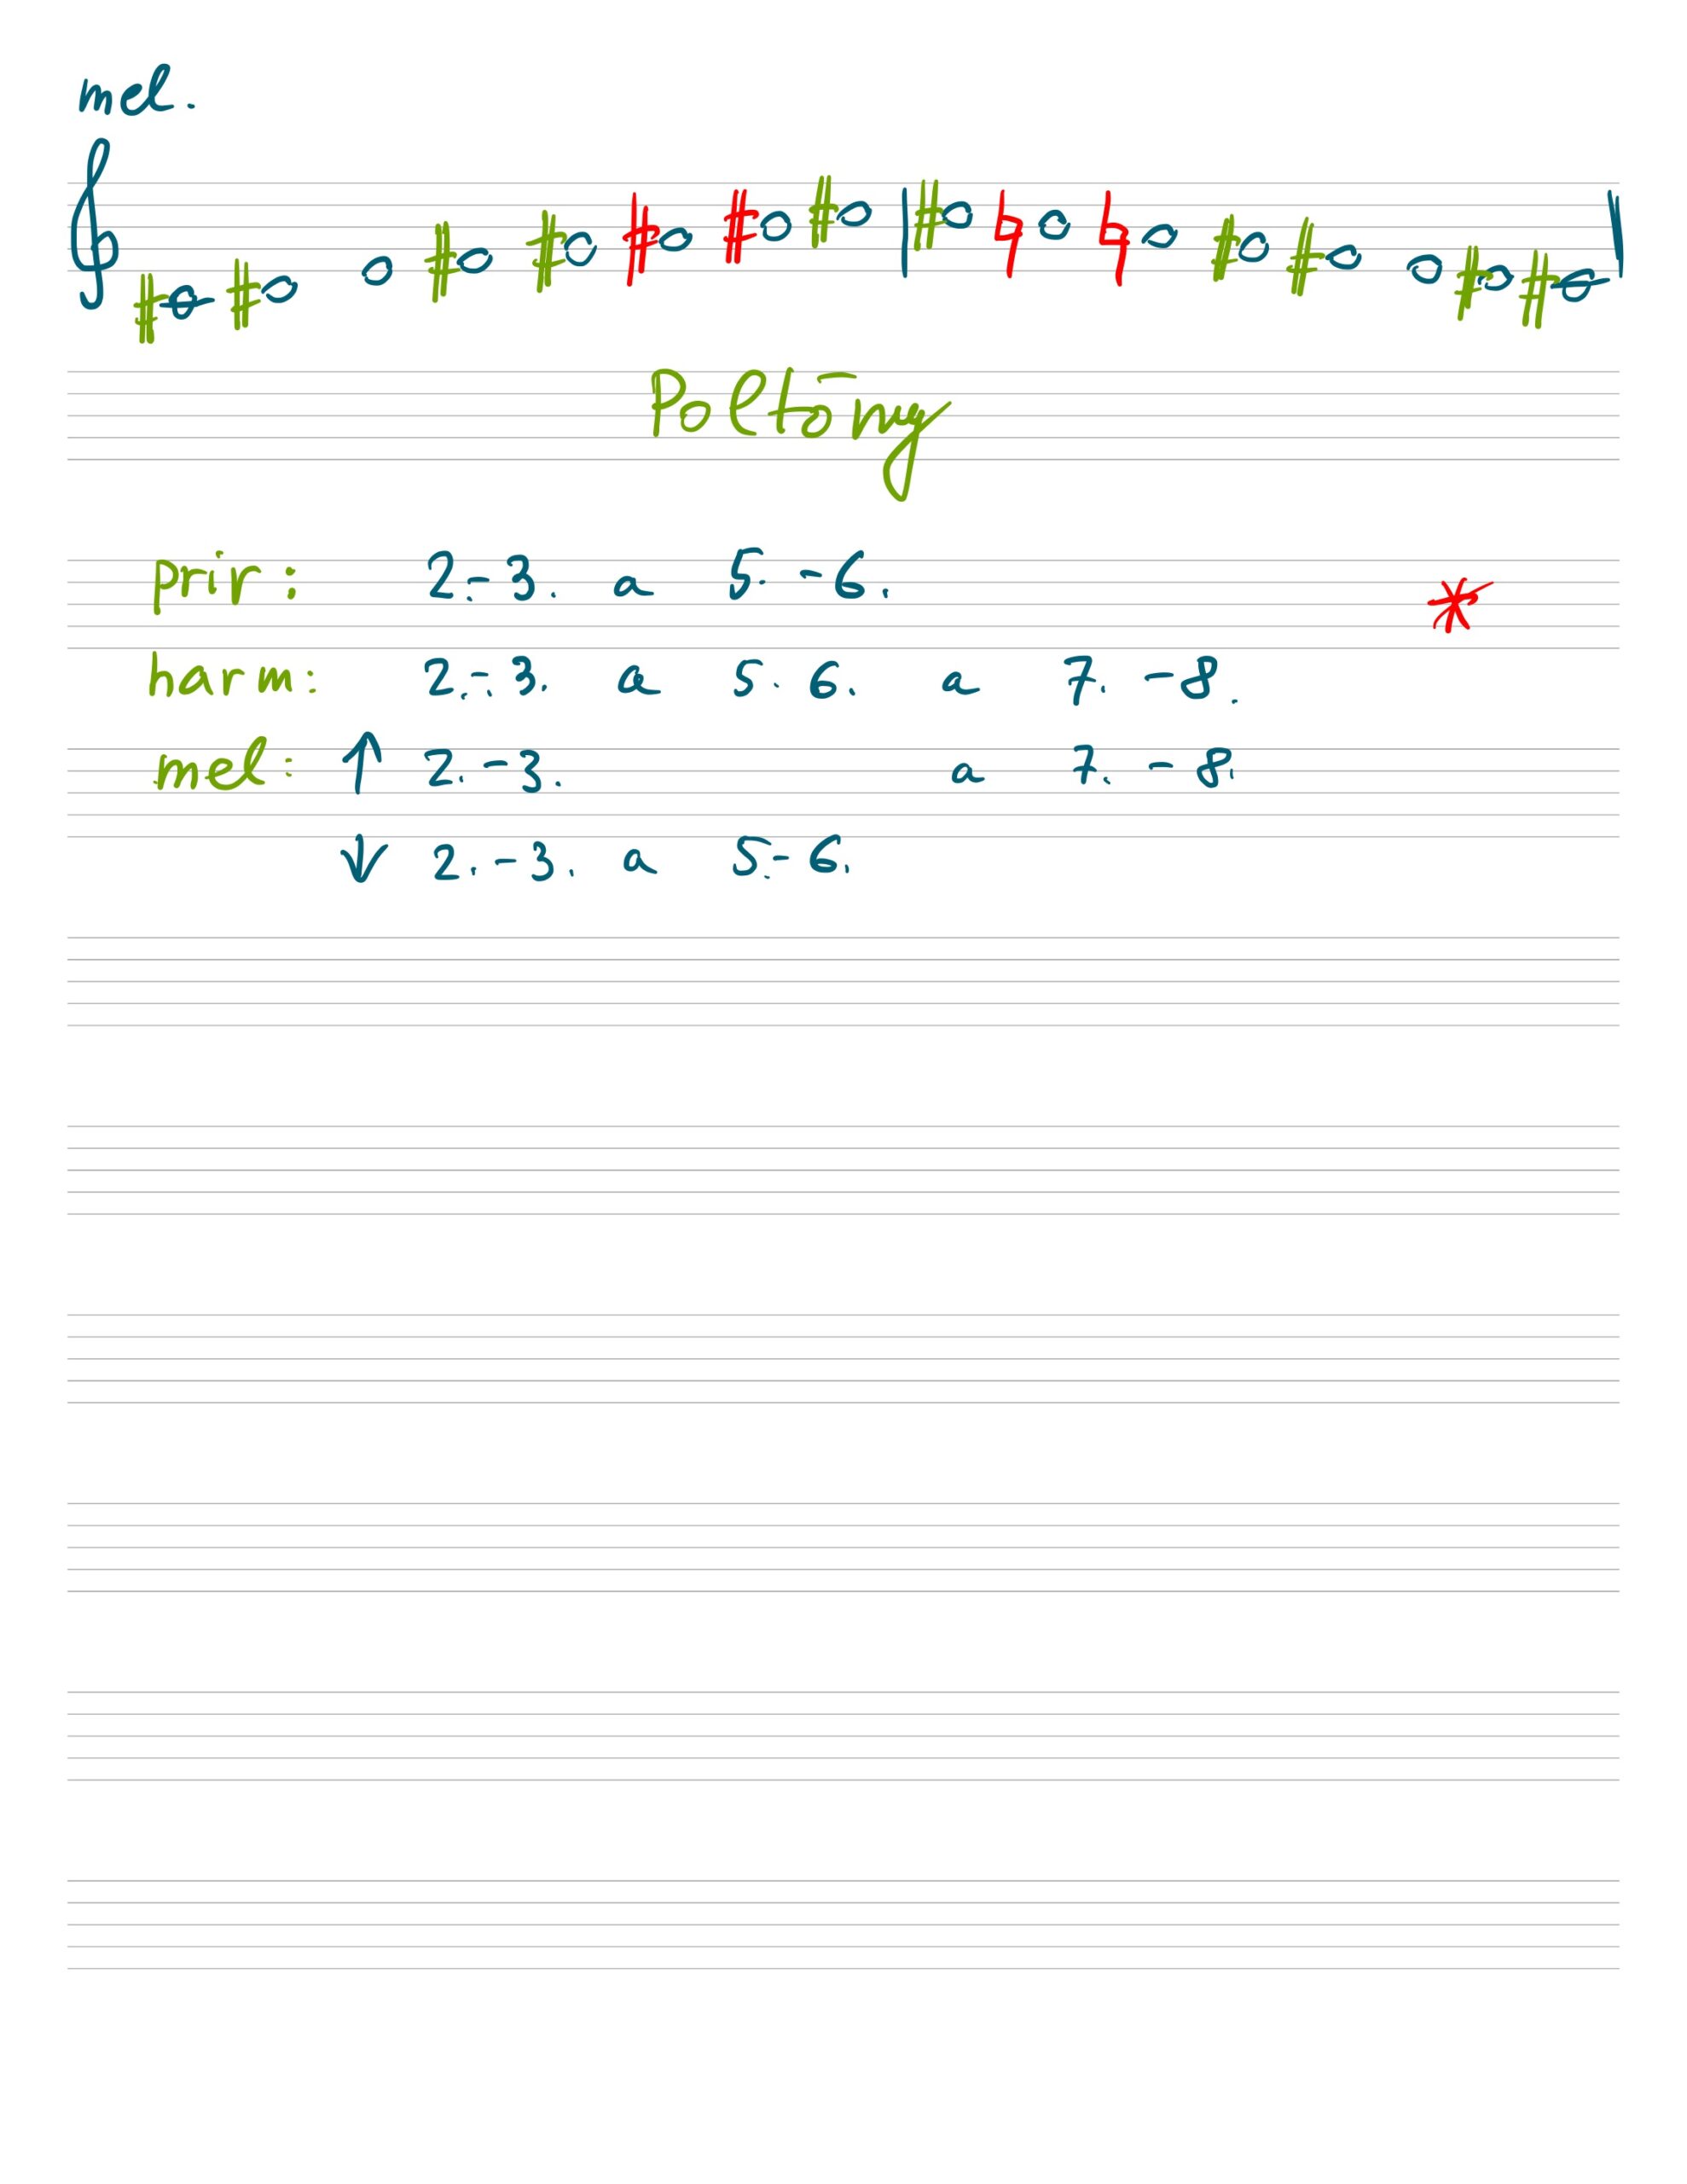 mel.
Poltóny
prir:   2.-3. a 5.-6.
*
harm:   2.-3. a 5.-6. a 7.-8.
mel: ↑ 2.-3. a 7.-8.
↓ 2.-3. a 5.-6.